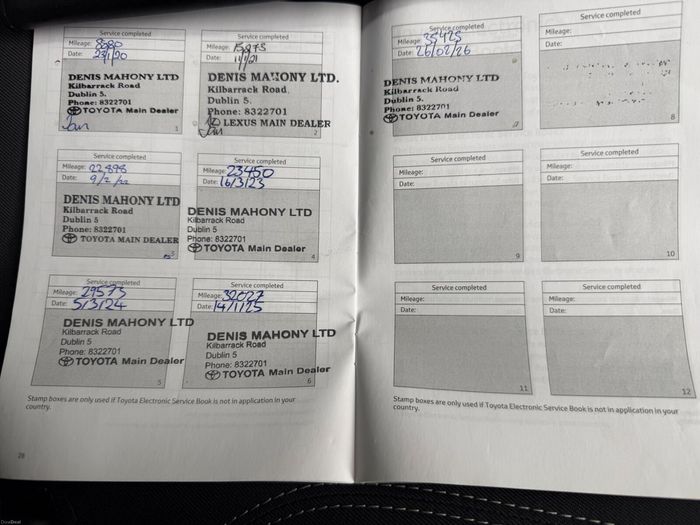 Service completed
Mileage: 8980
Date: 23/1/20
DENIS MAHONY LTD
Kilbarrack Road
Dublin 5.
Phone: 8322701
TOYOTA Main Dealer
1
Service completed
Mileage: 15973
Date: 11/1/21
DENIS MAHONY LTD.
Kilbarrack Road.
Dublin 5.
Phone: 8322701
LEXUS MAIN DEALER
2
Service completed
Mileage: 22,898
Date: 9/2/22
DENIS MAHONY LTD
Kilbarrack Road
Dublin 5
Phone: 8322701
TOYOTA MAIN DEALER
3
Service completed
Mileage: 23450
Date: 16/3/23
DENIS MAHONY LTD
Kilbarrack Road
Dublin 5
Phone: 8322701
TOYOTA Main Dealer
4
Service completed
Mileage: 29573
Date: 5/3/24
DENIS MAHONY LTD
Kilbarrack Road
Dublin 5
Phone: 8322701
TOYOTA Main Dealer
5
Service completed
Mileage: 32027
Date: 14/1/25
DENIS MAHONY LTD
Kilbarrack Road
Dublin 5
Phone: 8322701
TOYOTA Main Dealer
6
Stamp boxes are only used if Toyota Electronic Service Book is not in application in your
country.
28
Service completed
Mileage: 35425
Date: 26/02/26
DENIS MAHONY LTD
Kilbarrack Road
Dublin 5.
Phone: 8322701
TOYOTA Main Dealer
7
Service completed
Mileage:
Date:
8
Service completed
Mileage:
Date:
9
Service completed
Mileage:
Date:
10
Service completed
Mileage:
Date:
11
Service completed
Mileage:
Date:
12
Stamp boxes are only used if Toyota Electronic Service Book is not in application in your
country.
DoneDeal